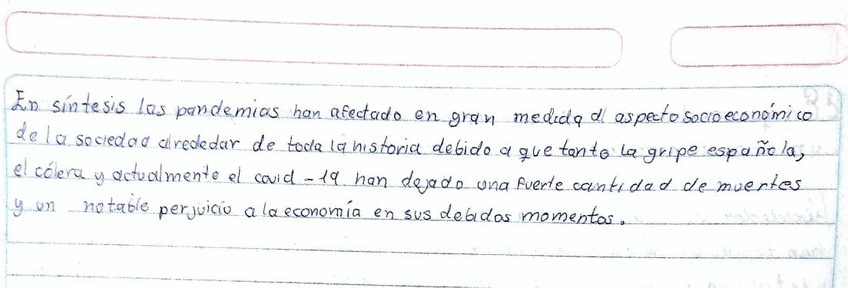 En síntesis las pandemias han afectado en gran medida al aspecto socioeconómico
de la sociedad alrededar de toda la historia debido a que tanto la gripe española,
el cólera y actualmente el covid-19 han dejado una fuerte cantidad de muertes
y un notable perjuicio a la economía en sus debidos momentos.